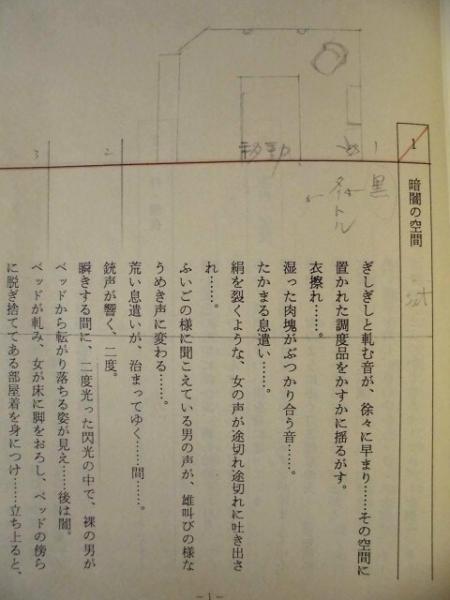 1
暗闇の空間
ぎしぎしと軋む音が、徐々に早まり……その空間に
置かれた調度品をかすかに揺るがす。
衣擦れ……。
湿った肉塊がぶつかり合う音……。
たかまる息遣い……。
絹を裂くような、女の声が途切れ途切れに吐き出さ
れ……。
ふいごの様に聞こえている男の声が、雄叫びの様な
うめき声に変わる……。
荒い息遣いが、治まってゆく……間……。
銃声が響く、二度。
瞬きする間に、二度光った閃光の中で、裸の男が
ベッドから転がり落ちる姿が見え……後は闇。
ベッドが軋み、女が床に脚をおろし、ベッドの傍ら
に脱ぎ捨ててある部屋着を身につけ……立ち上ると、
1
黒
タイトル
移動
2
3
-1-